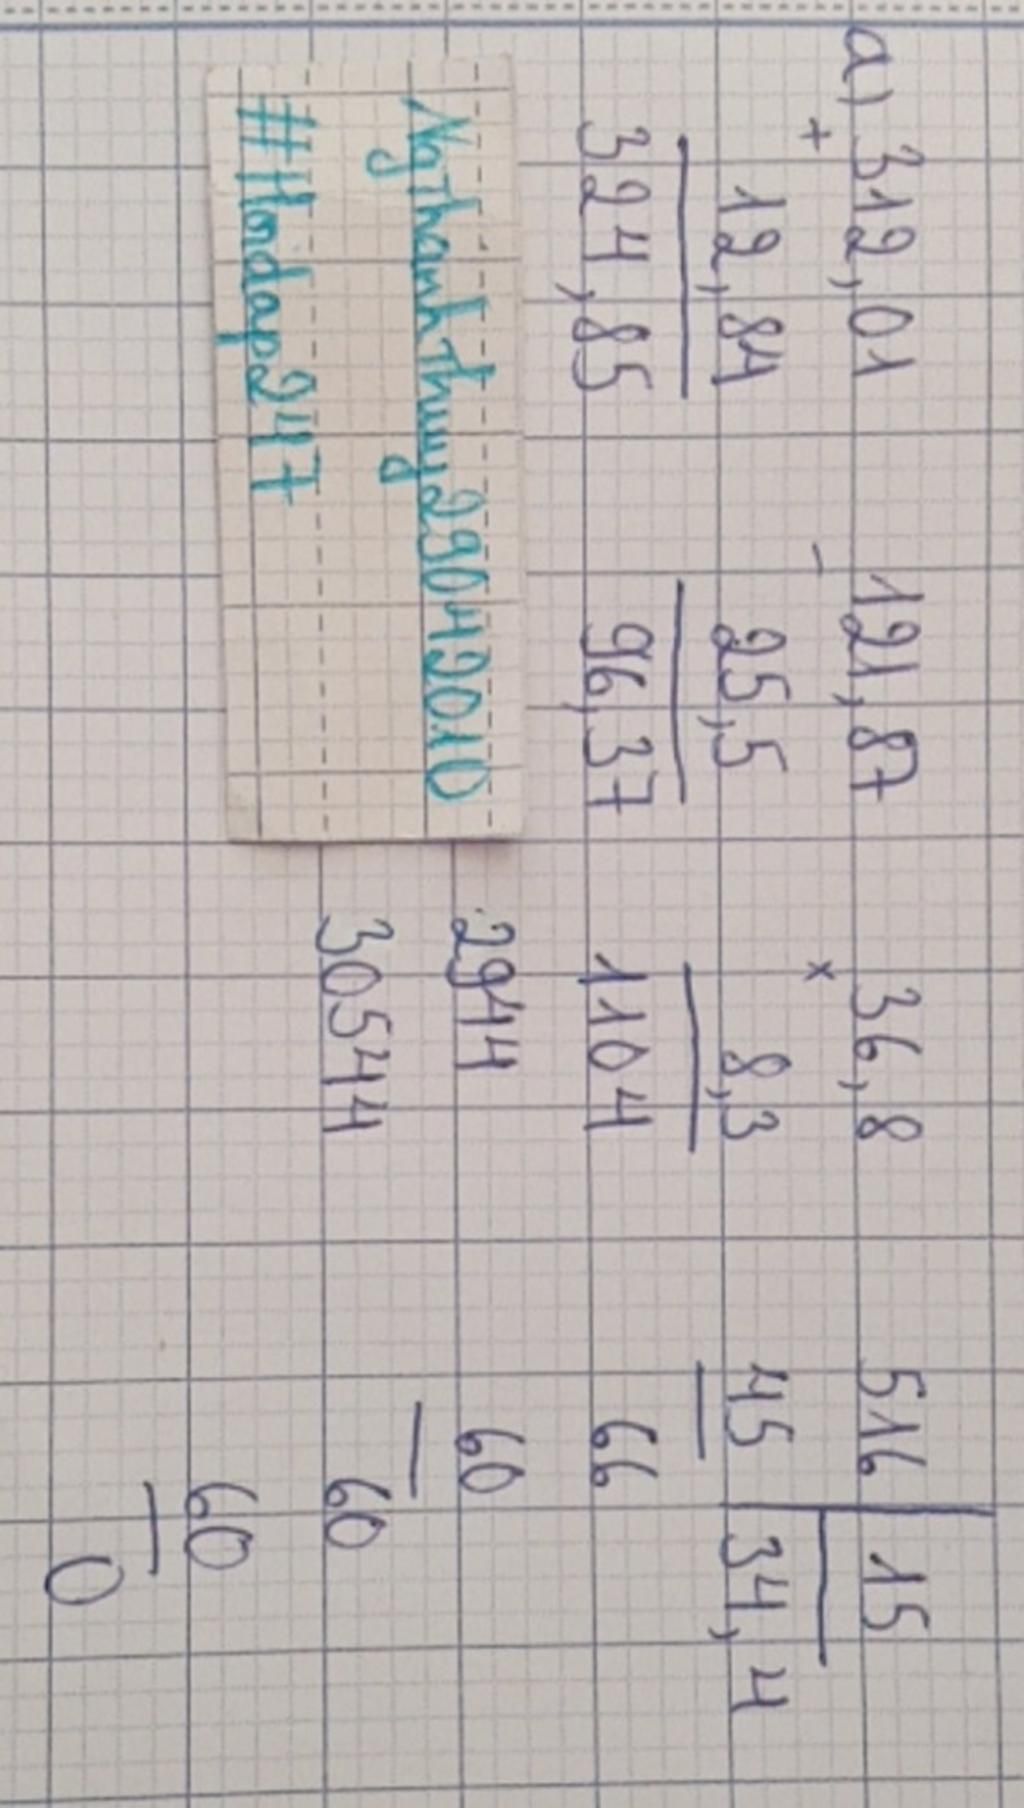 a) 312,01
+
12,84
324,85
121,87
-
25,5
96,37
36,8
×
8,3
1104
2944
30544
516 | 15
45 34,4
66
60
60
60
0
NgThanhThuy29042010
#Hoidap247